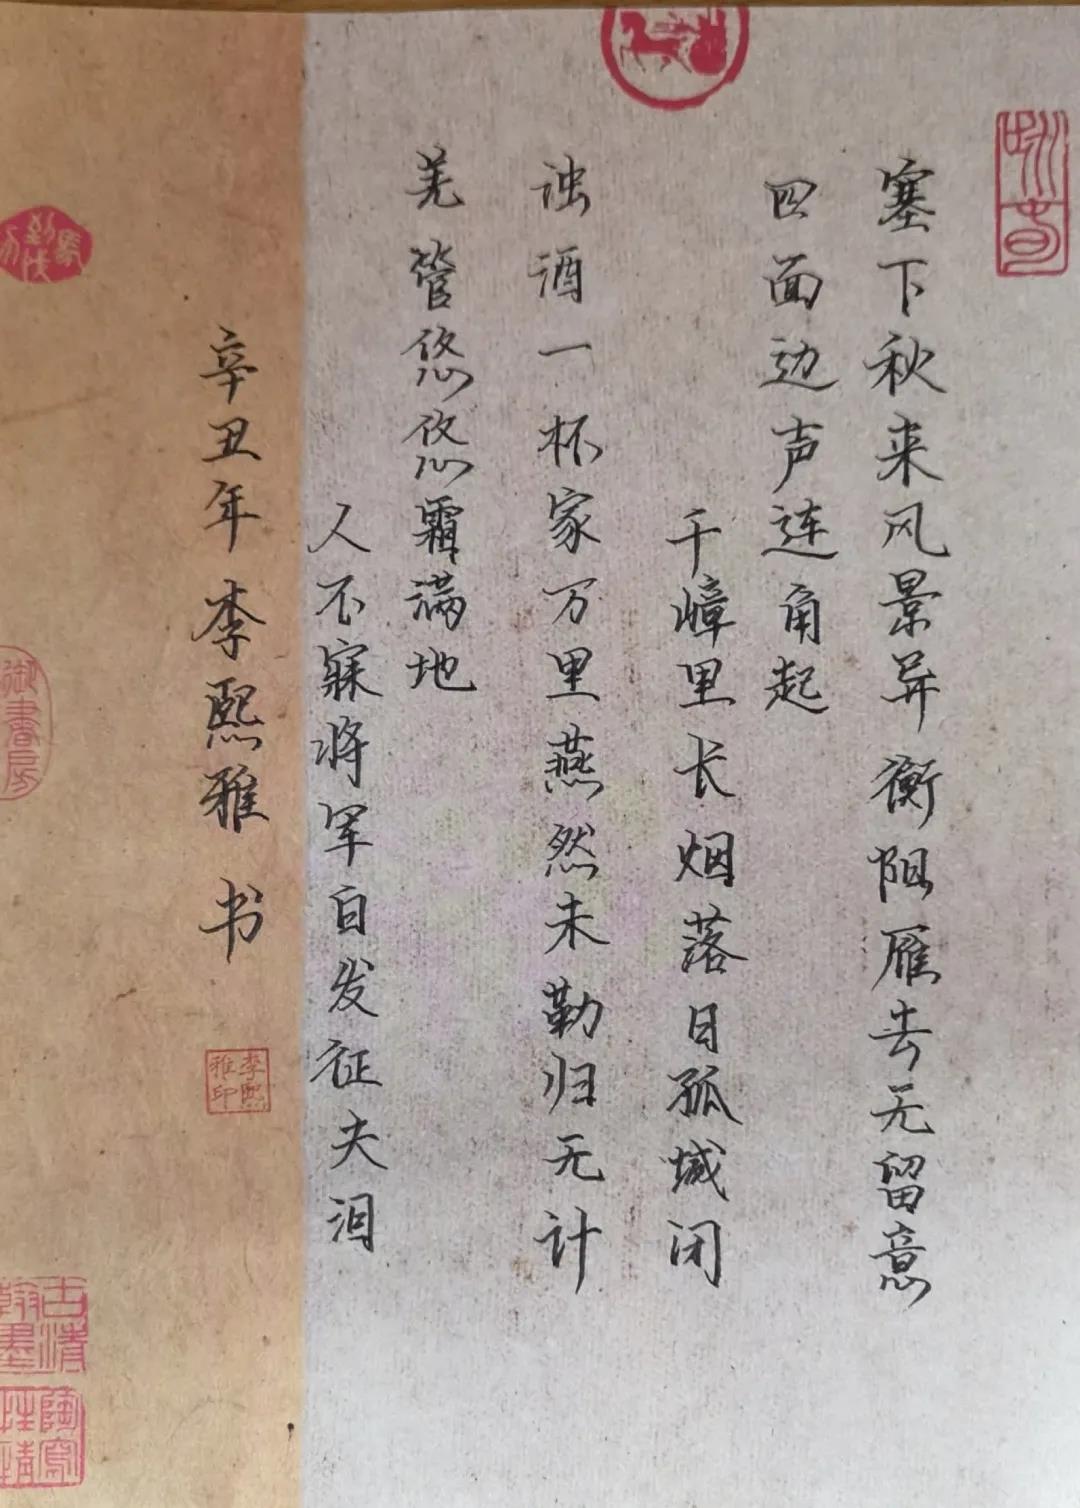 塞下秋来风景异衡阳雁去无留意
四面边声连角起
千嶂里长烟落日孤城闭
浊酒一杯家万里燕然未勒归无计
羌管悠悠霜满地
人不寐将军白发征夫泪
辛丑年李熙雅书
李熙雅印
御書房